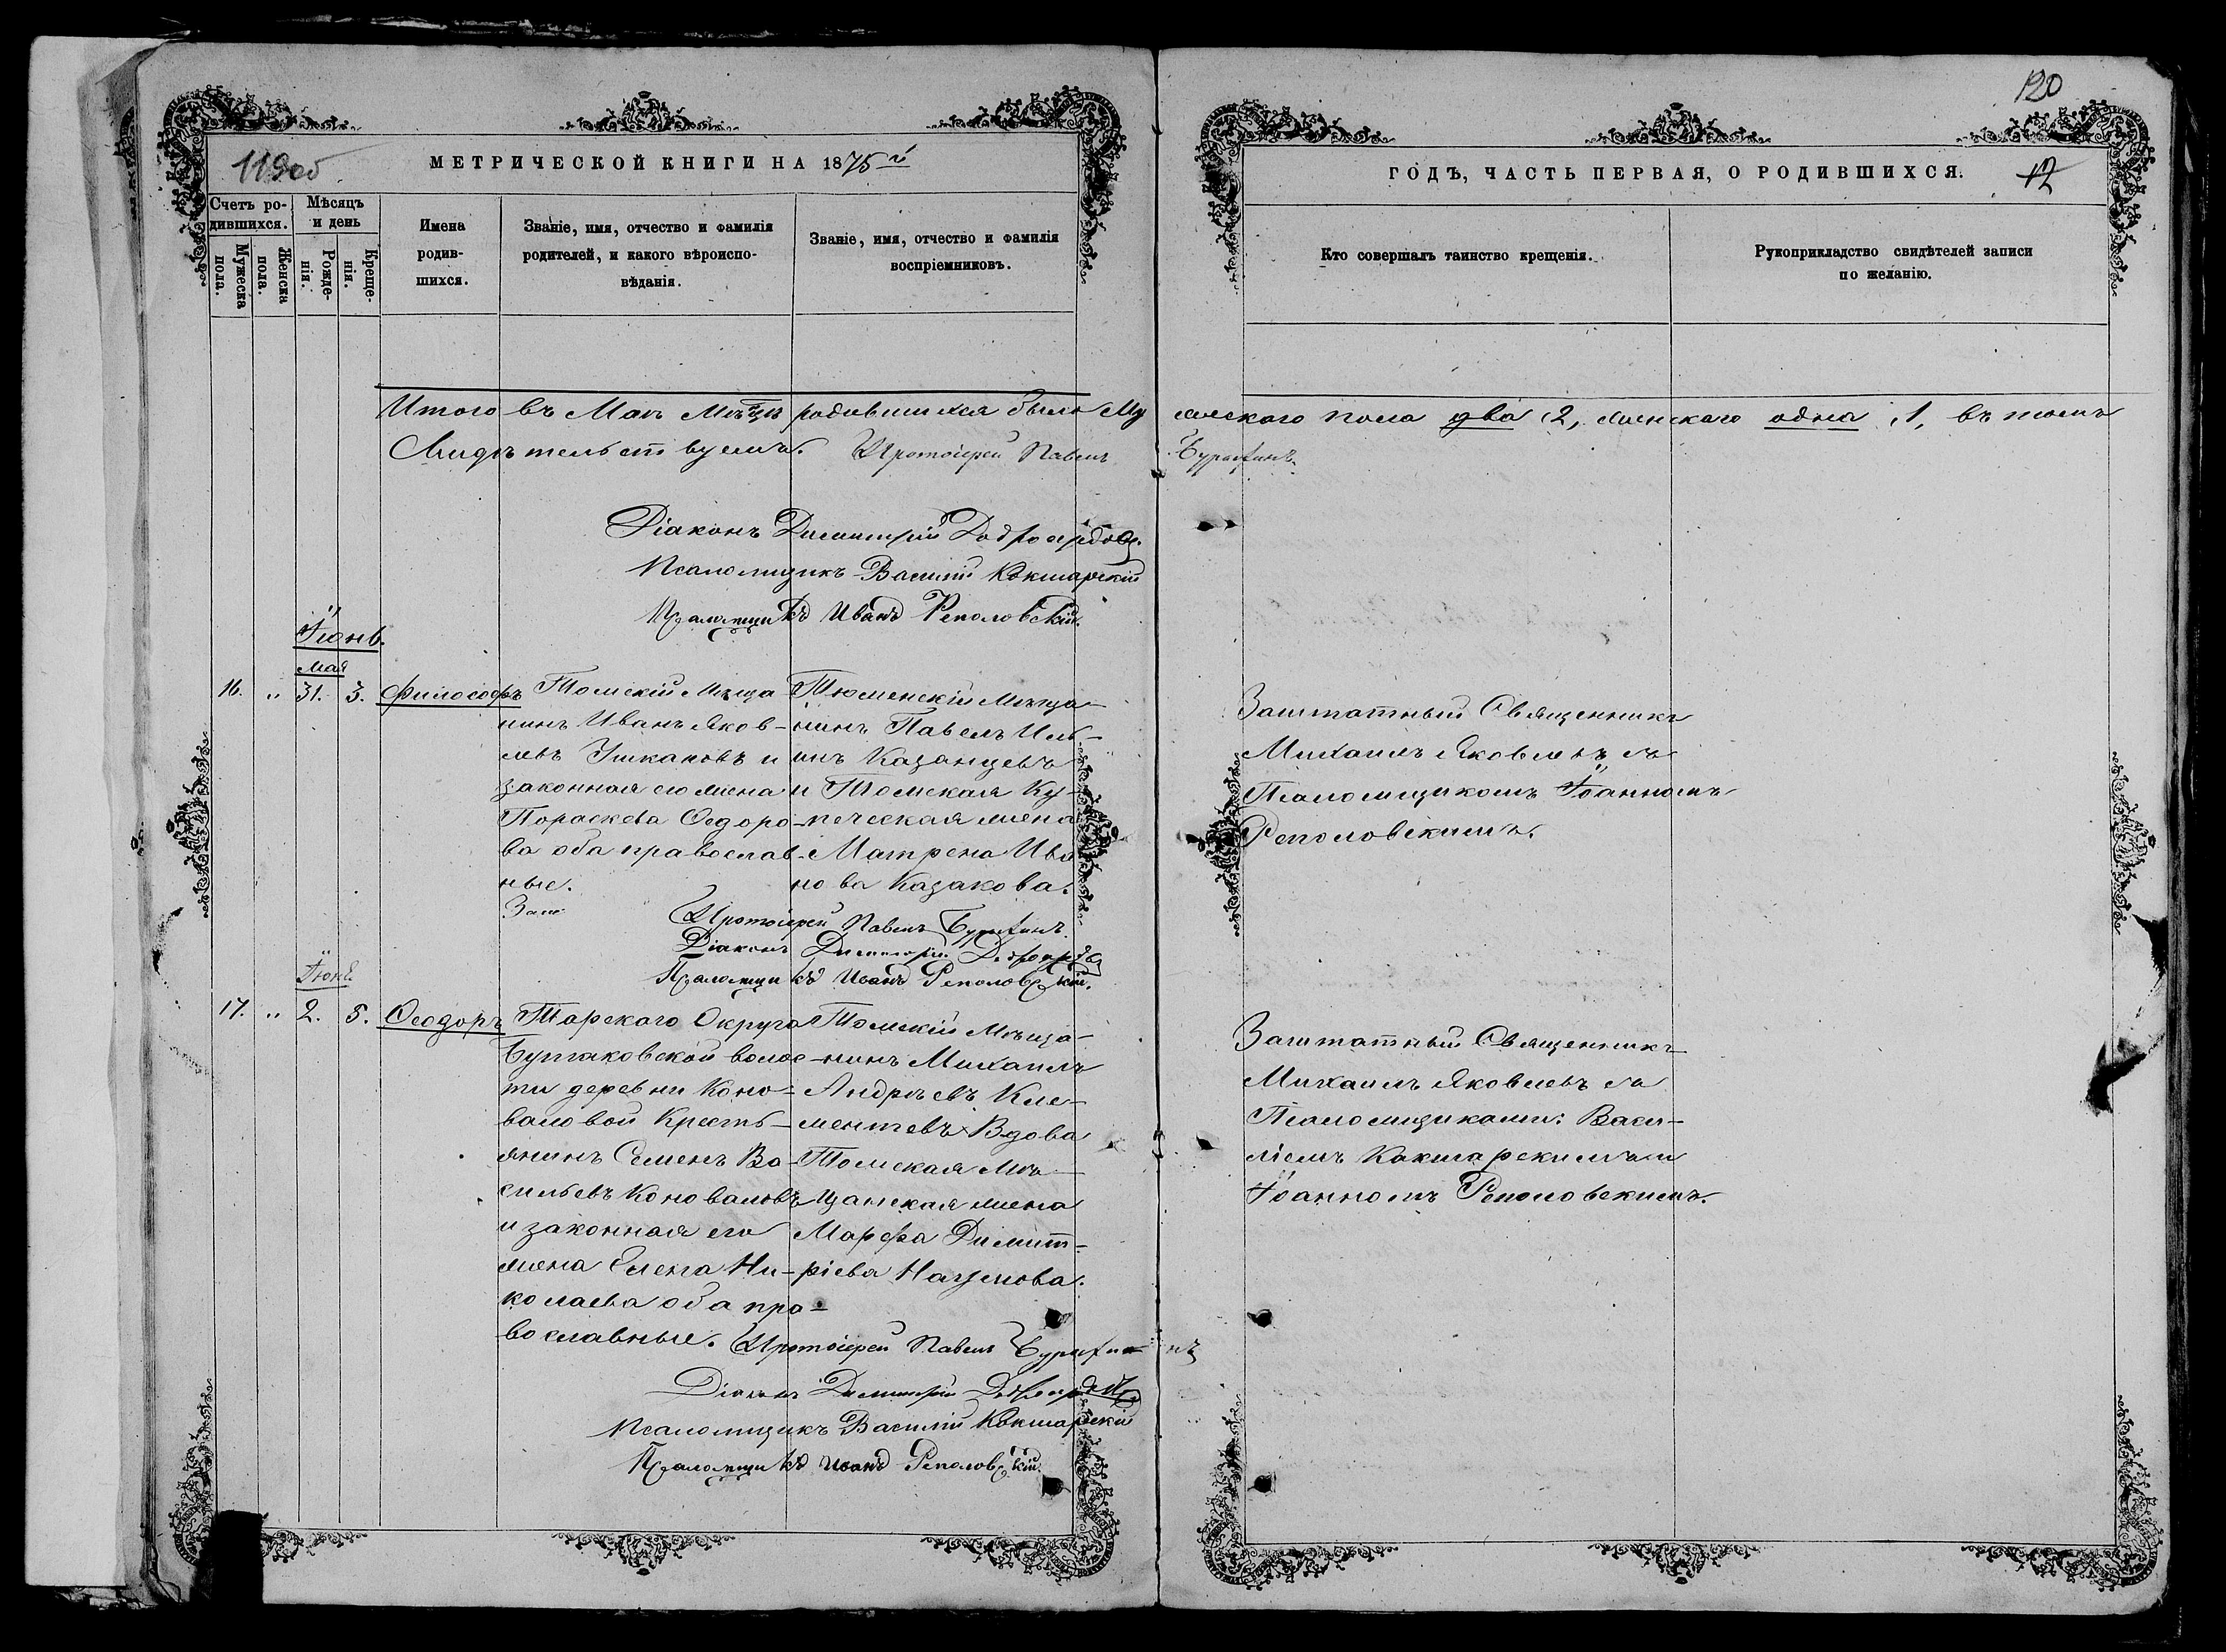 119об
МЕТРИЧЕСКОЙ КНИГИ НА 1875й
Счетъ ро-
дившихся.
Мужеска
пола.
Женска
пола.
Мѣсяцъ
и день
Рожде-
нія.
Креще-
нія.
Имена
родив-
шихся.
Званіе, имя, отчество и фамилія
родителей, и какого вѣроиспо-
вѣданія.
Званіе, имя, отчество и фамилія
воспріемниковъ.
120
ГОДЪ, ЧАСТЬ ПЕРВАЯ, О РОДИВШИХСЯ. 12
Кто совершалъ таинство крещенія.
Рукоприкладство свидѣтелей записи
по желанію.
Итого въ Маѣ Мѣцѣ родившихся было Му жескаго пола два 2, женскаго одна 1, въ томъ
Свидѣтельствуемъ. Протоіерей Павелъ
Діаконъ Димитрій Добросердовъ.
Псаломщикъ Василій Кокшарскій
Псаломщикъ Иванъ Реполовскій.
Іюнь.
Мая
16. „ 31. 3. Философъ
Томскій Мѣща
нинъ Иванъ Яков-
левъ Ушкаковъ и
законная его жена
Параскева Ѳедоро-
ва оба православ-
ные.
Тюменскій Мѣща-
нинъ Павелъ Иль-
инъ Казанцевъ
и Томская Ку-
печеская жена
Матрена Ива
нова Казакова.
Заштатный Священникъ
Михаилъ Яковлевъ съ
Псаломщикомъ Іоанномъ
Реполовскимъ.
Протоіерей Павелъ
Діаконъ Димитрій Добросердовъ
Псаломщикъ Иванъ Реполовскій.
Іюнь
17. „ 2. 5. Ѳеодоръ
Тарскаго Округа
Бутаковской волос-
ти деревни Коно-
валовой Кресть-
янинъ Семенъ Ва-
сильевъ Коноваловъ
и законная его
жена Елена Ни-
колаева оба пра-
вославные.
Томскій Мѣща-
нинъ Михаилъ
Андрѣевъ Кле-
ментевъ Вдова
Томская Мѣ-
щанская жена
Марѳа Димит-
ріева Наумова.
Заштатный Священникъ
Михаилъ Яковлевъ съ
Псаломщиками: Васи-
ліемъ Кокшарскимъ и
Іоанномъ Реполовскимъ.
Протоіерей Павелъ
Діаконъ Димитрій Добросердовъ
Псаломщикъ Василій Кокшарскій
Псаломщикъ Иванъ Реполовскій.